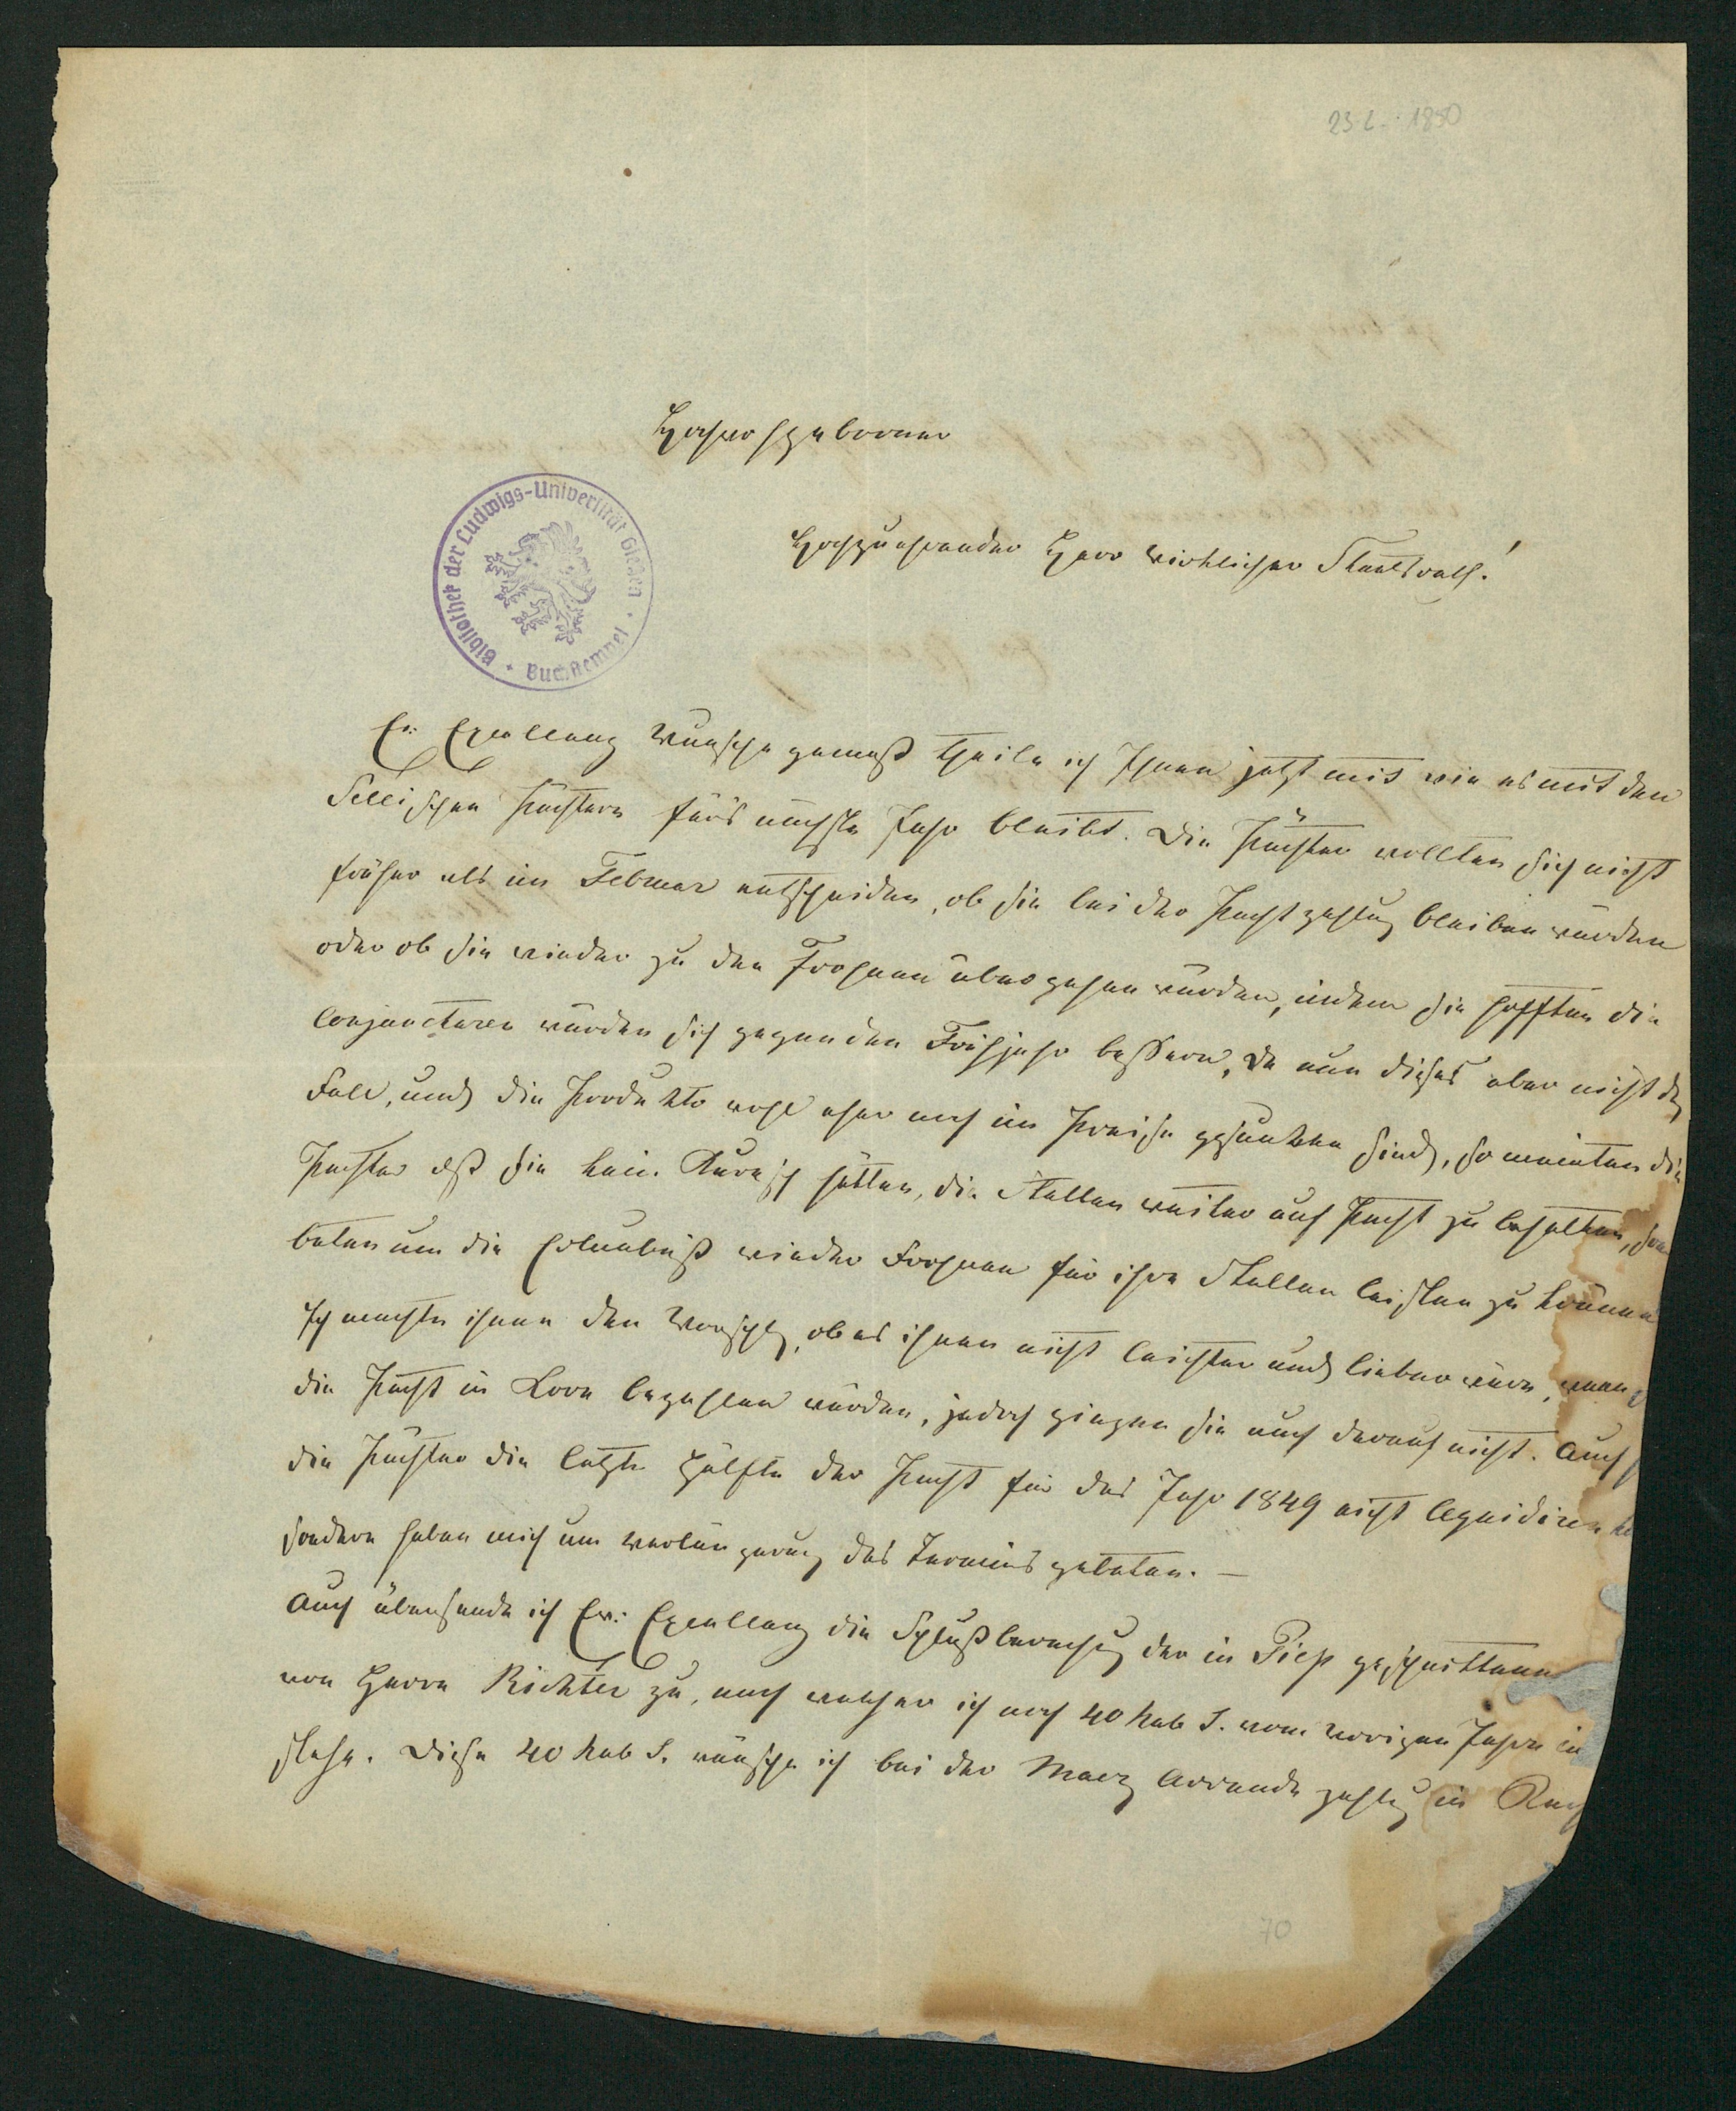 23 2. 1850
Hochwohlgeborener
Hochzuehrender Herr wirklicher Staatsrath!
Bibliothek der Ludwigs-Universität Giessen
Buchstempel
Ew. Excellenz Wunsche gemäß theile ich Ihnen jetzt mit wie es mit den
Sellischen Pächtern für's nächste Jahr bleibt. Die Pächter wollten sich nicht
früher als im Februar entscheiden, ob sie bei der Pachtzahlung bleiben würden
oder ob sie wieder zu den Frohnen übergehen würden, indem sie hofften die
Conjuncturen würden sich gegen den Frühjahr bessern, da nun dieses aber nicht der
Fall, und die Produkte wohl eher noch im Preise gesunken sind, so meinten die
Pächter daß sie kein Kurasch hätten, die Stellen weiter auf Pacht zu behalten,
baten um die Erlaubniß wieder Frohnen für ihre Stellen leisten zu können
Ich machte ihnen den Vorschlag, ob es ihnen nicht leichter und lieber wäre, wenn
die Pacht in Korn bezahlen würden, jedoch gingen sie auch darauf nicht. Auch
die Pächter die letzte Hälfte der Pacht für das Jahr 1849 nicht liquidiren
sondern haben mich um Verlängerung des Termins gebeten. —
Auch übersende ich Ew. Excellenz die Schlußberechnung der in Piep geschnittenen
von Herrn Richter zu, nach welcher ich noch 40 Rub S. vom vorigen Jahre in
stehe. Diese 40 Rub S. wünsche ich bei der Maerz Arrende zahlung in
70